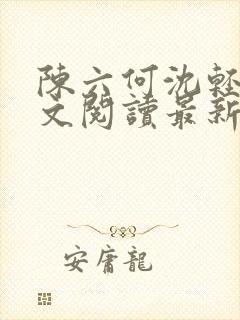 陳六何沈輕
文閱讀最新
安庸龍